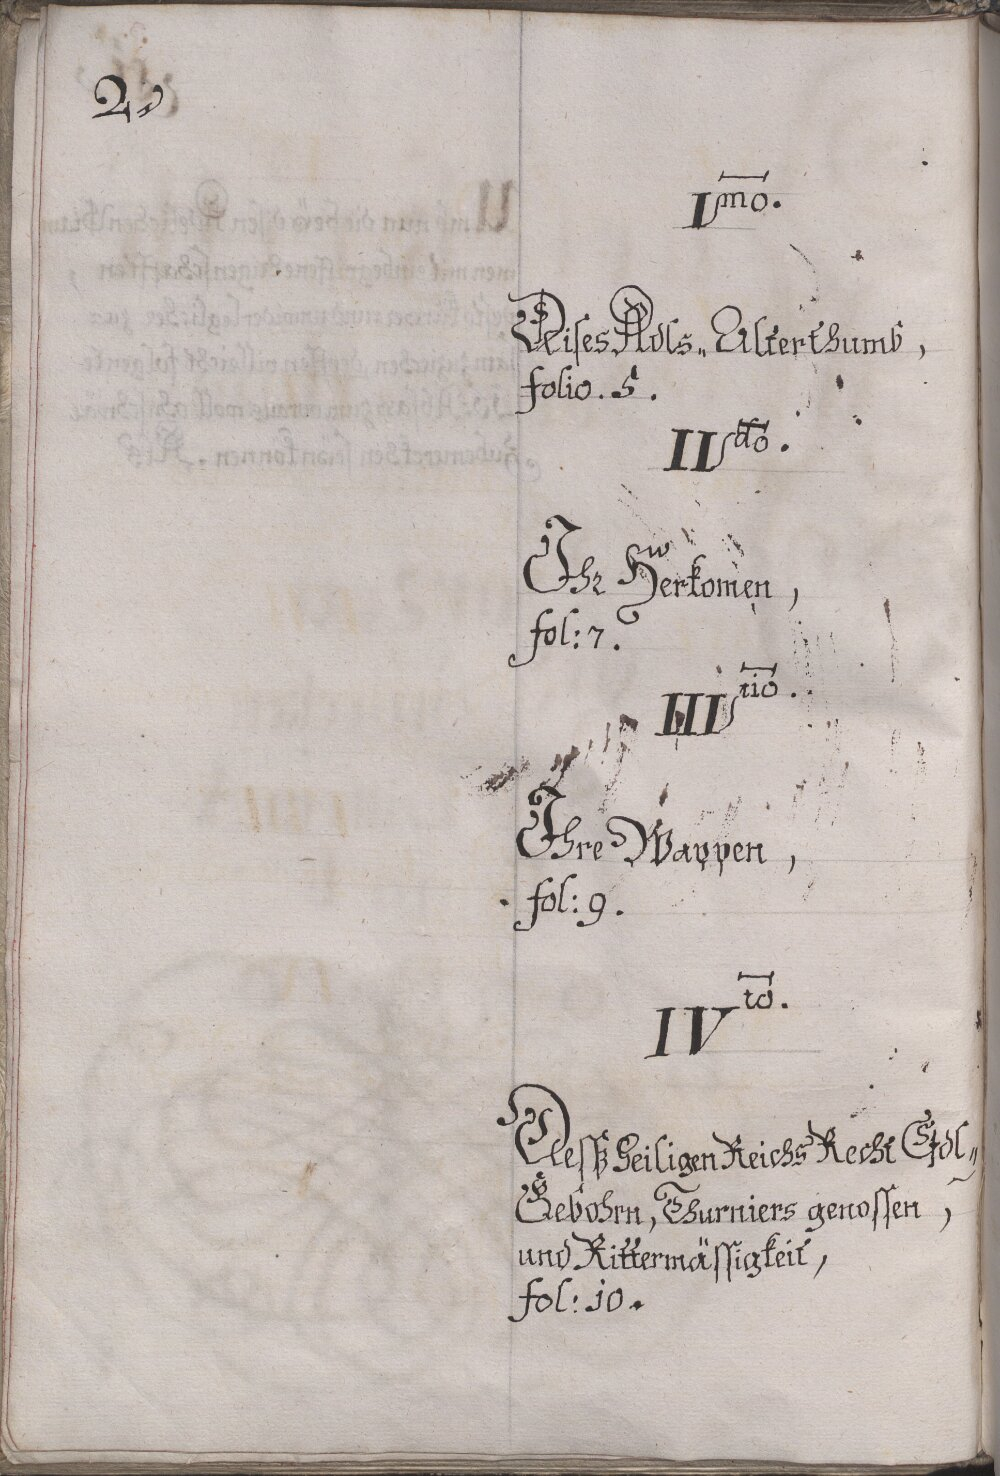 2.
I mo.
Dises Adls„ Alterthumb,
folio. 5.
II do.
Ihr Herkomen,
fol: 7.
III tio.
Ihre Wappen,
fol: 9.
IV to.
Desß Heiligen Reichs Recht Edl„
Gebohrn, Thurniers genossen,
und Rittermässigkeit,
fol: 10.